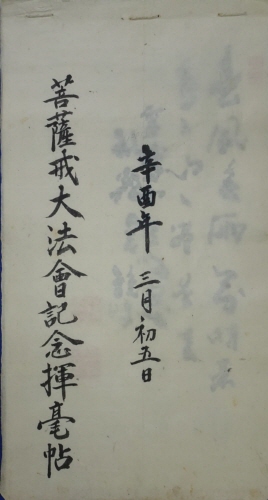 辛酉年 三月初五日
菩薩戒大法會記念揮毫帖